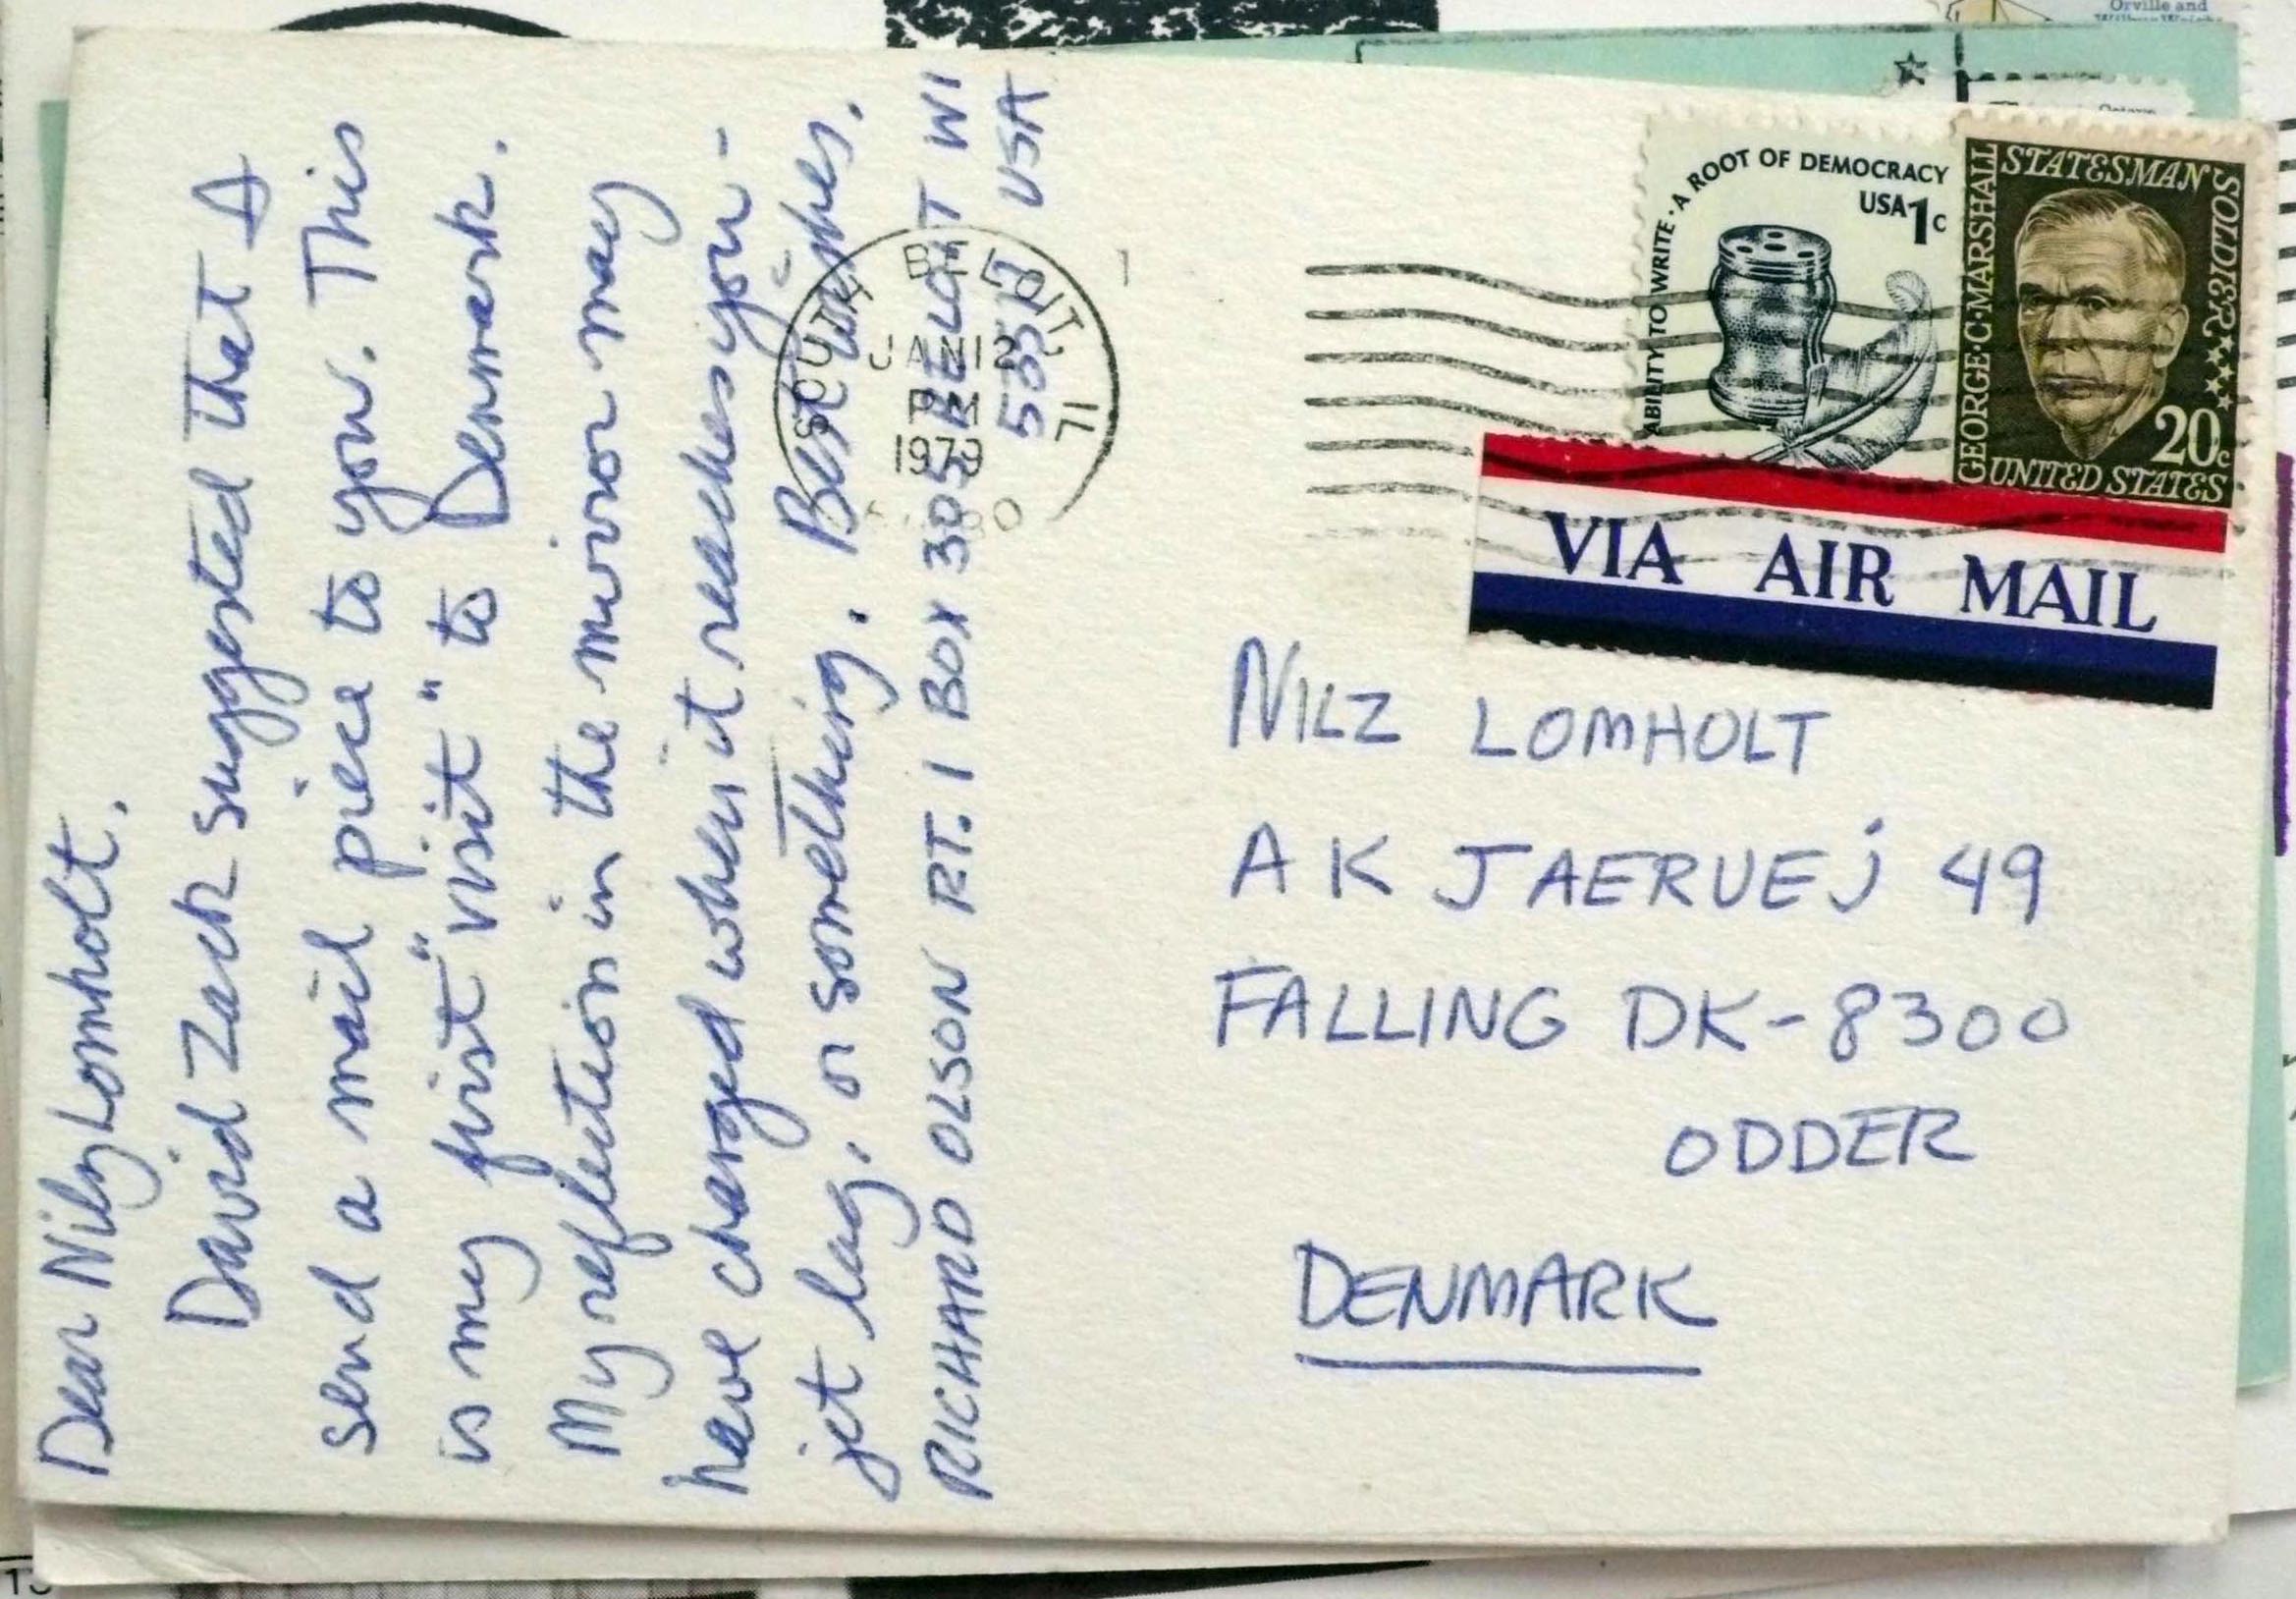 Dear Nilz Lomholt,
David Zack suggested that I
send a mail piece to you. This
is my first "visit" to Denmark.
My reflection in the mirror may
have changed when it reaches you -
jet lag, or something. Best wishes,
RICHARD OLSON RT. 1 BOX 305 BELOIT WI
53511 USA
SOUTH BELOIT, IL
JAN 12
PM
1979
ABILITY TO WRITE · A ROOT OF DEMOCRACY
USA 1c
GEORGE·C·MARSHALL
STATESMAN SOLDIER
20c
UNITED STATES
VIA AIR MAIL
NILZ LOMHOLT
A K JAERVEJ 49
FALLING DK-8300
ODDER
DENMARK
Orville and